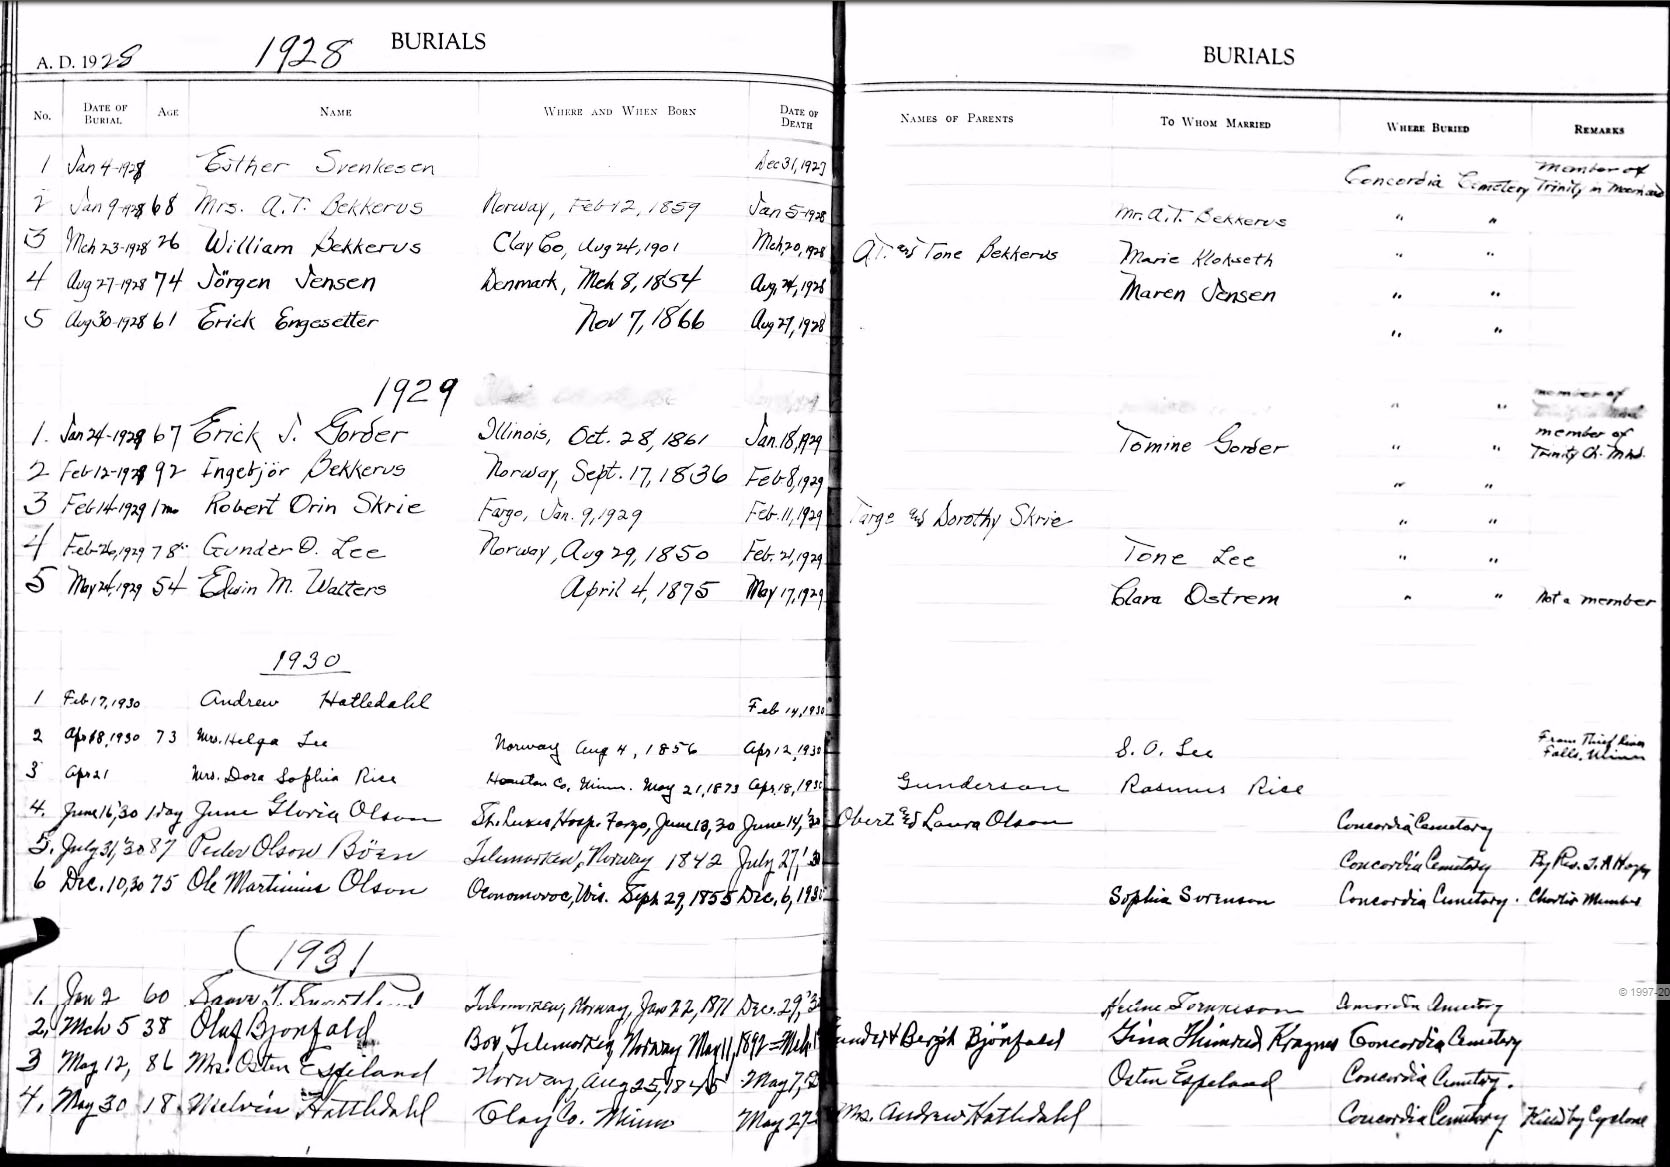 A. D. 1928 1928 BURIALS
BURIALS
No. DATE OF BURIAL AGE NAME WHERE AND WHEN BORN DATE OF DEATH NAMES OF PARENTS TO WHOM MARRIED WHERE BURIED REMARKS
1 Jan 4-1928 Esther Svenkesen Dec 31, 1927 Concordia Cemetery member of Trinity in
2 Jan 9-1928 68 Mrs. A.T. Bekkerus Norway, Feb 12, 1859 Jan 5-1928 Mr. A.T. Bekkerus " "
3 Mch 23-1928 26 William Bekkerus Clay Co, Aug 24, 1901 Mch 20, 1928 A.T. and Tone Bekkerus Marie Klokseth " "
4 Aug 27-1928 74 Jörgen Jensen Denmark, Mch 8, 1854 Aug, 24, 1928 Maren Jensen " "
5 Aug 30-1928 61 Erick Engesetter Nov 7, 1866 Aug 27, 1928 " "
1929 " " member of
1. Jan 24-1929 67 Erick J. Gorder Illinois, Oct. 28, 1861 Jan. 18, 1929 Tomine Gorder " " member of Trinity Ch. Mhd.
2 Feb 12-1929 92 Ingebjör Bekkerus Norway, Sept. 17, 1836 Feb 8, 1929 " "
3 Feb 14-1929 1 mo Robert Orin Skrie Fargo, Jan. 9, 1929 Feb. 11, 1929 Targe and Dorothy Skrie " "
4 Feb 26, 1929 78 Gunder O. Lee Norway, Aug 29, 1850 Feb. 21, 1929 Tone Lee " "
5 May 24, 1929 54 Edwin M. Walters April 4, 1875 May 17, 1929 Clara Ostrem " " Not a member
1930
1 Feb 17, 1930 Andrew Hatledahl Feb 14, 1930
2 Apr 18, 1930 73 Mrs. Helga Lee Norway Aug 4, 1856 Apr 12, 1930 S. O. Lee From Thief River Falls, Minn
3 Apr 21 Mrs. Dora Sophia Rice Houston Co, Minn. May 21, 1873 Apr. 18, 1930 Gunderson Rasmus Rice
4. June 16, '30 1 day June Gloria Olson St. Lukes Hosp. Fargo, June 13, 30 June 14, '30 Obert and Laura Olson Concordia Cemetery
5. July 31, '30 87 Peder Olson Böen Telemarken, Norway 1842 July 27, '30 Concordia Cemetery By Rev.
6 Dec. 10, 30 75 Ole Martinius Olson Oconomovoc, Wis. Sept 29, 1855 Dec. 6, 1930 Sophia Sorenson Concordia Cemetery. Charter Member
1931
1. Jan 2 60 Telemarken, Norway, Jan 22, 1871 Dec. 29, '30 Concordia Cemetery
2. Mch 5 38 Olaf Bjonfald Bö, Telemarken, Norway May 11, 1892 Mch 1 Gunder & Bergit Bjönfald Gina Concordia Cemetery
3 May 12, 86 Mrs. Osten Espeland Norway, Aug 25, 1845 May 7, Osten Espeland Concordia Cemetery.
4. May 30 18 Melvin Hattledahl Clay Co. Minn May 27 Mrs. Andrew Hathdahl Concordia Cemetery Killed by Cyclone
© 1997-20